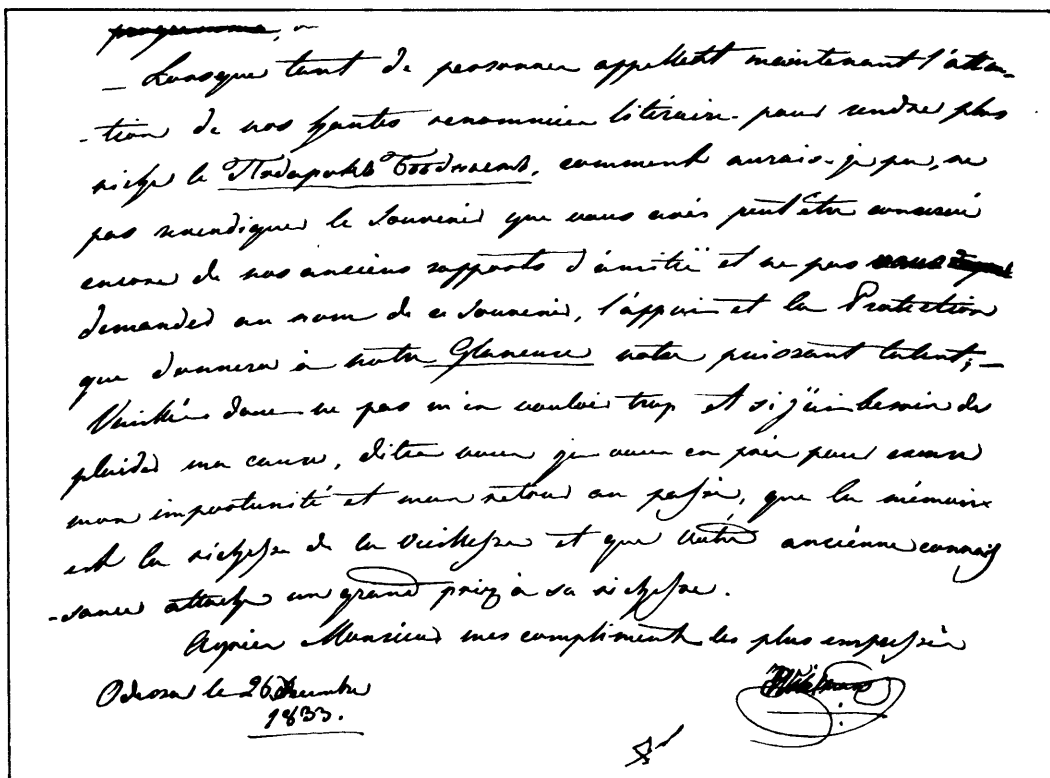 programme,
— Lorsque tant de personnes appellent maintenant l'atten-
-tion de nos hautes renommées litéraires pour rendre plus
riche le Подарокъ Бѣднымъ, comment aurais-je pu, ne
pas revendiquer le souvenir que vous avés peut être conservé
encore de nos anciens rapports d'amitié et ne pas
demander au nom de ce souvenir, l'appui et la Protection
que donnera à notre Glaneuse votre puissant talent; —
Veuillés donc ne pas m'en vouloir trop et si j'ai besoin de
plaider ma cause, dites vous je vous en prie pour excuse
mon importunité et mon retour au passé, que la mémoire
est la richesse de la vieillesse et que votre ancienne connais
-sance attache un grand prix à sa richesse.
Agréez Monsieur mes compliments les plus empressés
Odessa le 26 Decembre
1833.